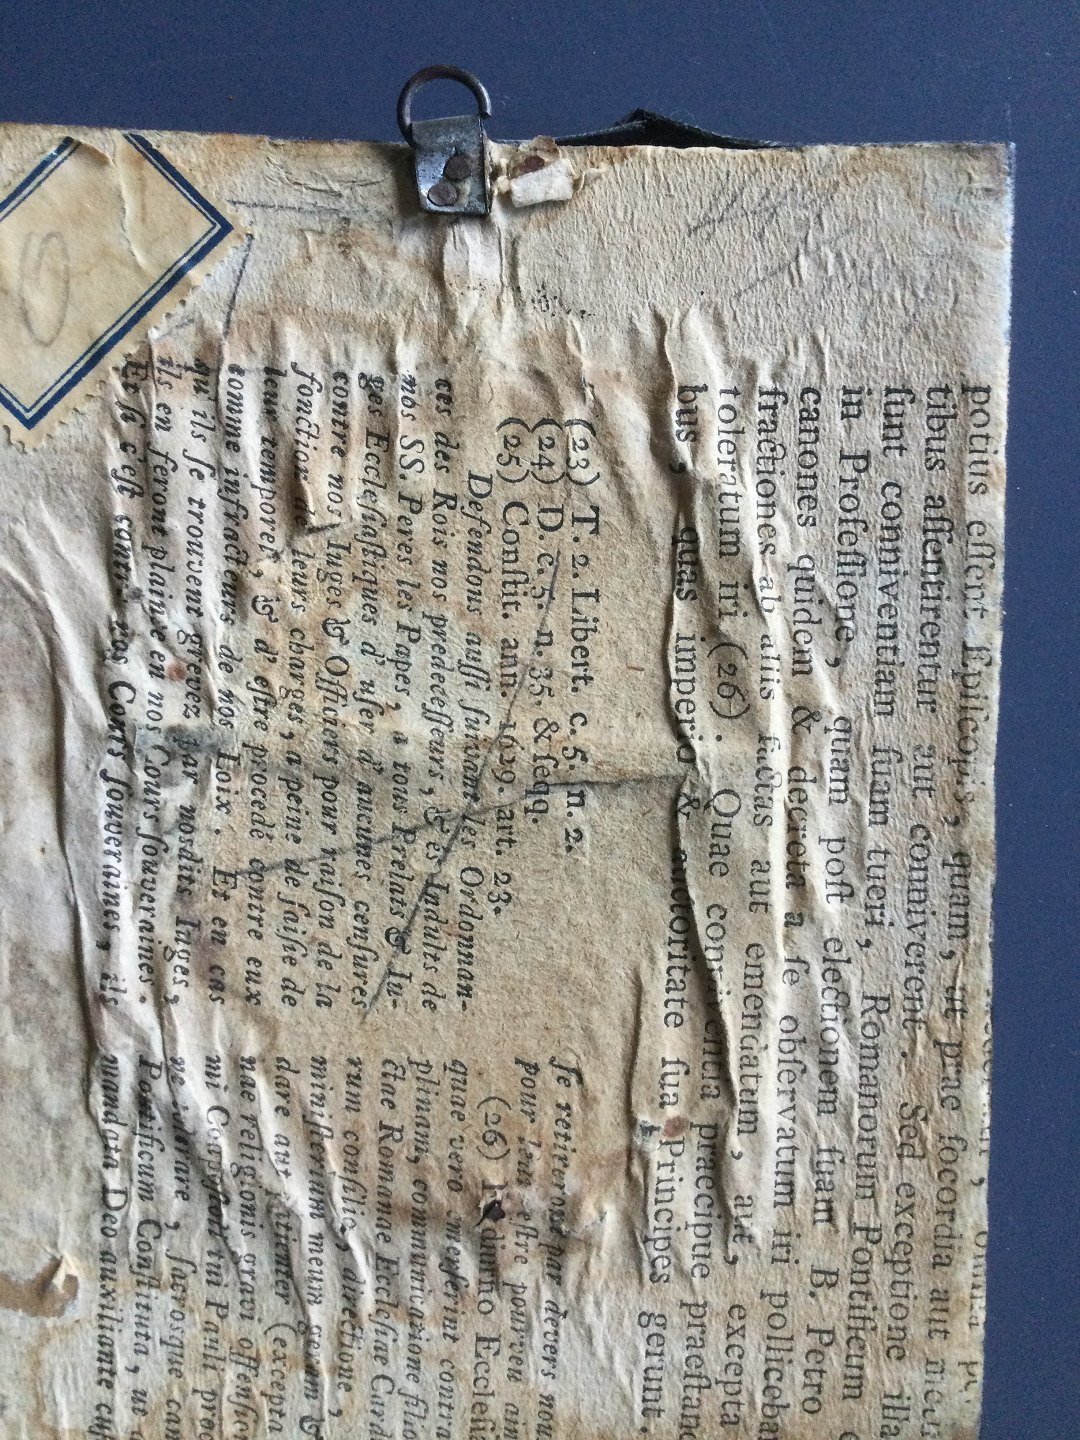 potius essent Episcopis, quam, ut prae socordia aut
tibus assentirentur aut conniverent. Sed exceptione illa
sunt conniventiam suam tueri, Romanorum Pontificum
in Professione, quam post electionem suam B. Petro
canones quidem & decreta a se observatum iri
fractiones ab aliis factas aut emendatum, aut,
toleratum iri (26). Quae conniventia praecipue
bus, quas imperio & auctoritate sua Principes gerunt.
(23) T. 2. Libert. c. 5. n. 2.
(24) D. c. 5. n. 35. & seqq.
(25) Constit. ann. 1629. art. 23.
Defendons aussi suivant les Ordonnan-
ces des Rois nos predecesseurs, & es Indults de
nos SS. Peres les Papes, a tous Prelais & Iu-
ges Ecclesiastiques d'user d'aucunes censures
contre nos Iuges & Officiers pour raison de la
fonction de leurs charges, a peine de saisie de
leur temporel, & d'estre procedé contre eux
comme infracteurs de nos Loix. Et en cas
qu'ils se trouvent grevez par nosdits Iuges,
ils en feront plainte en nos Cours souveraines.
Et si c'est contre nos Cours souveraines, ils
se retireront par devers nous
pour leur estre pourveu
(26)
quae vero emerserint contra
plinam, communicatione
ctae Romanae Ecclesiae
rum consilio, directione,
ministerium meum gesem &
dare aut patienter (excepta
nae religionis gravi
mi
Pontificum Constituta, ut
mandata Deo auxiliante
0